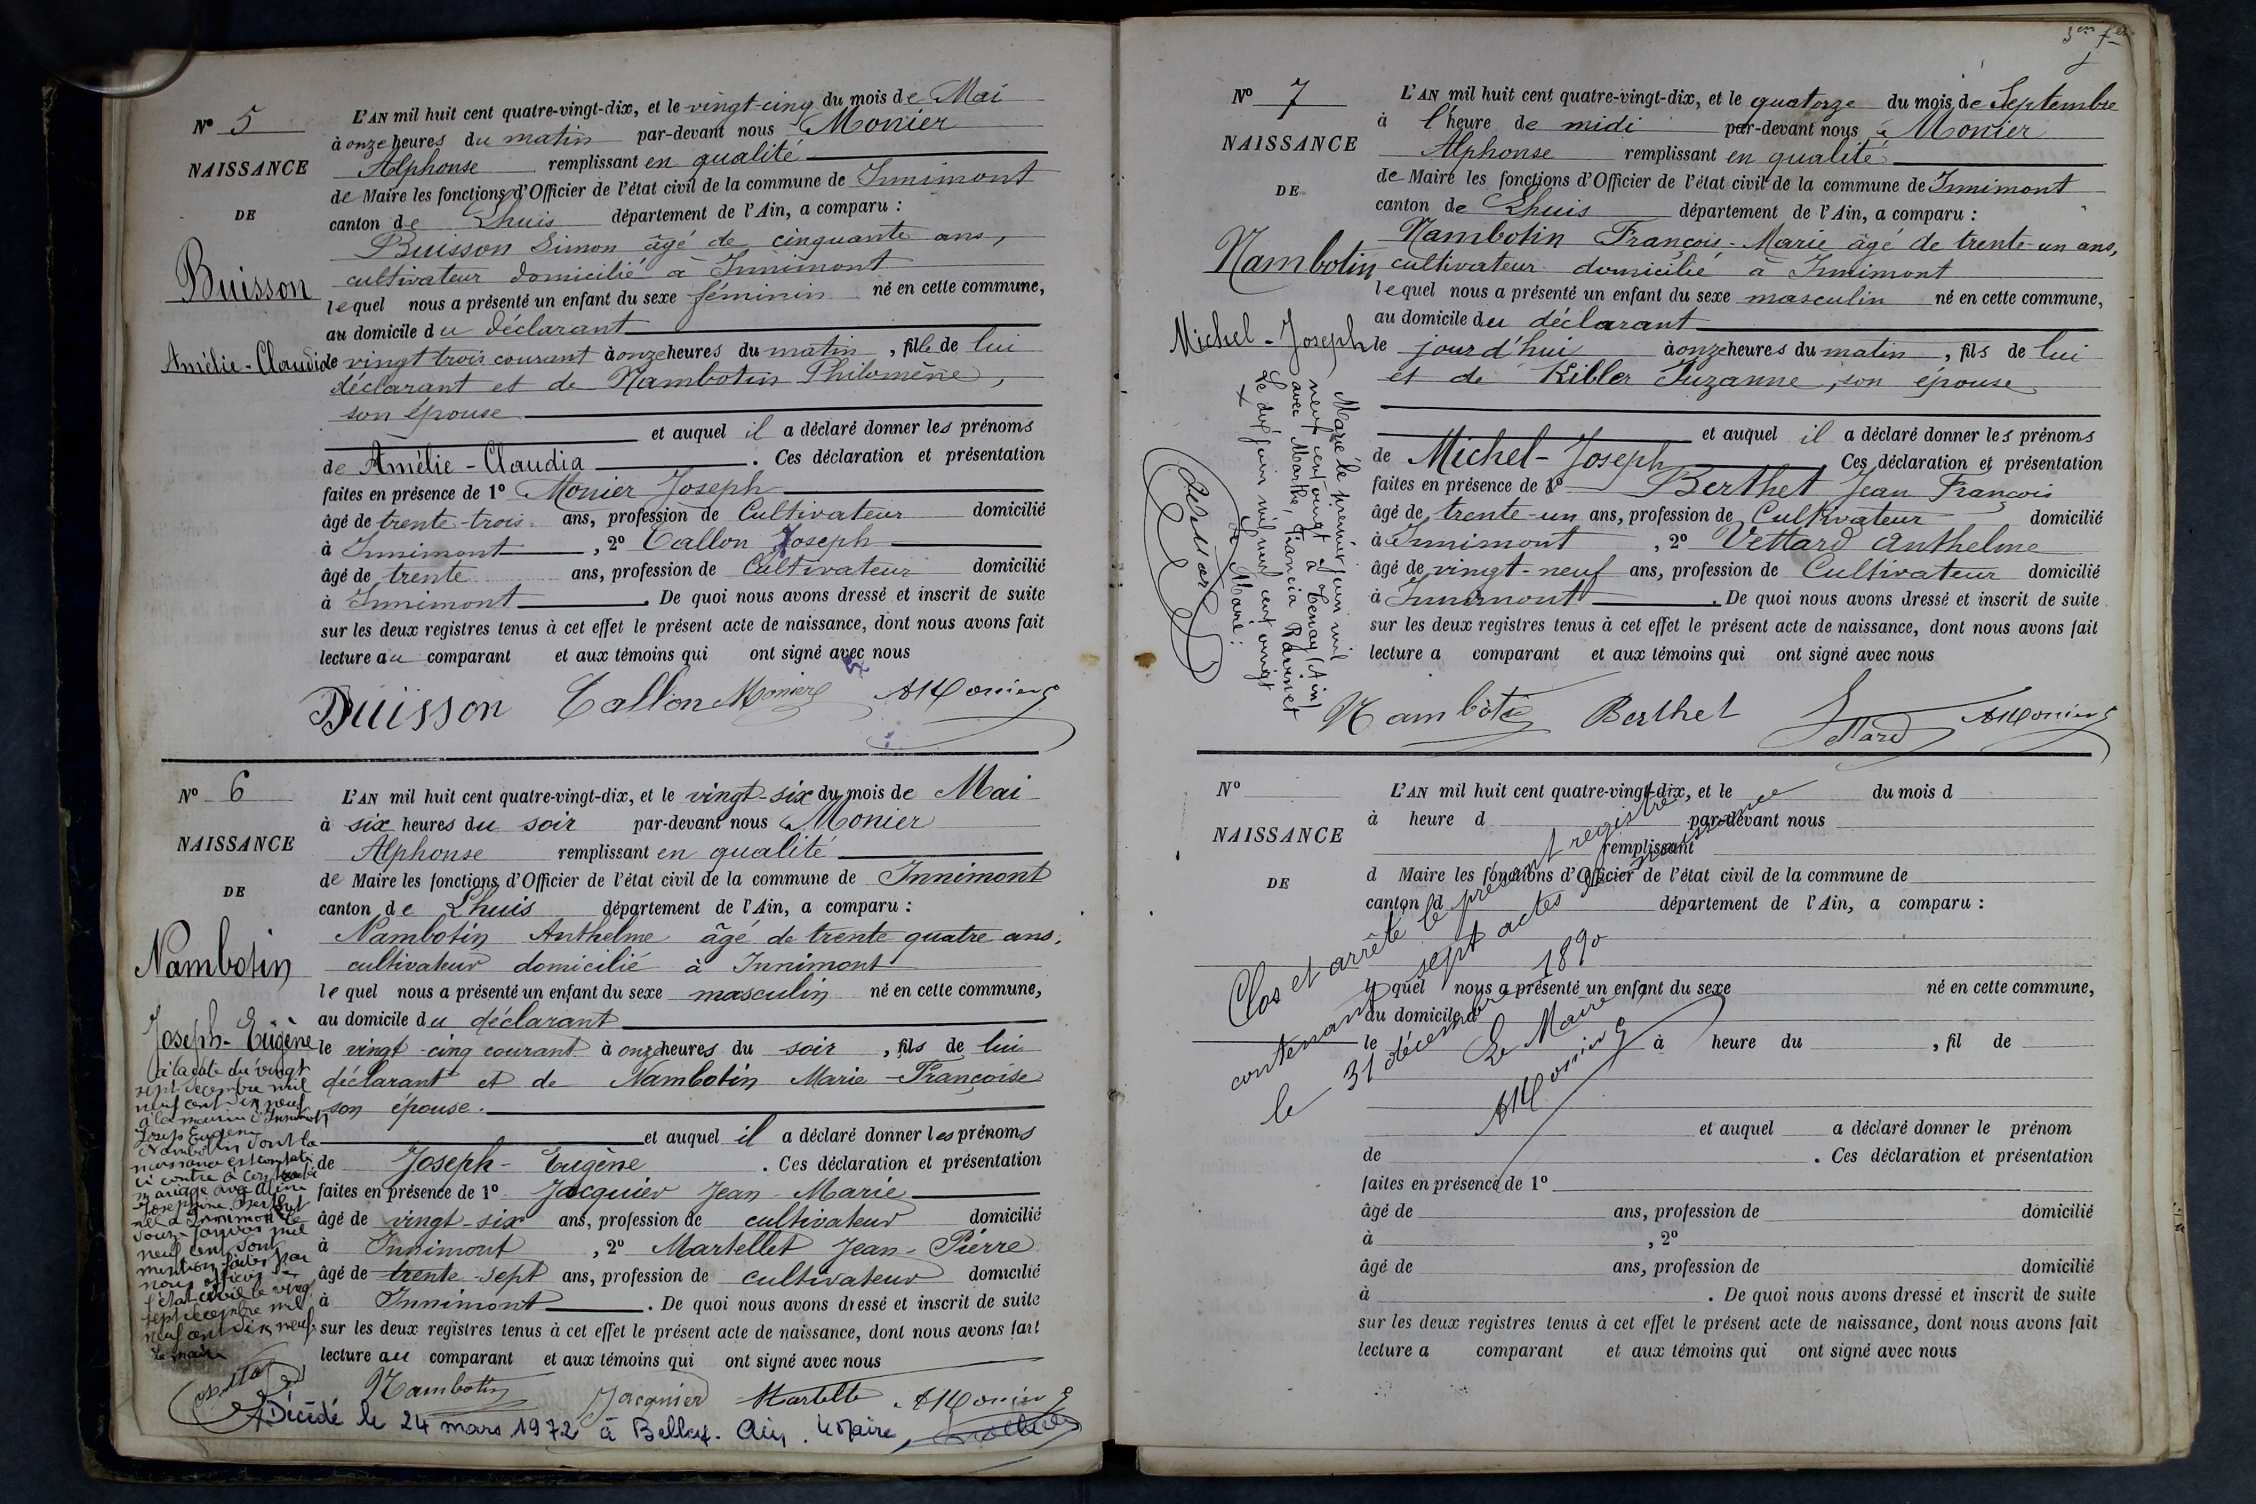 Nº 5
NAISSANCE
DE
Buisson
Amélie-Claudia
L'AN mil huit cent quatre-vingt-dix, et le vingt-cinq du mois de Mai
à onze heures du matin par-devant nous Monier
Alphonse remplissant en qualité
de Maire les fonctions d'Officier de l'état civil de la commune de Innimont
canton de Lhuis département de l'Ain, a comparu :
Buisson Simon âgé de cinquante ans,
cultivateur domicilié à Innimont
lequel nous a présenté un enfant du sexe féminin né en cette commune,
au domicile du déclarant
le vingt trois courant à onze heures du matin, fille de lui
déclarant et de Nambotin Philomène,
son épouse
et auquel il a déclaré donner les prénoms
de Amélie-Claudia. Ces déclaration et présentation
faites en présence de 1º Monier Joseph
âgé de trente-trois ans, profession de Cultivateur domicilié
à Innimont, 2º Callon Joseph
âgé de trente ans, profession de Cultivateur domicilié
à Innimont. De quoi nous avons dressé et inscrit de suite
sur les deux registres tenus à cet effet le présent acte de naissance, dont nous avons fait
lecture au comparant et aux témoins qui ont signé avec nous
Buisson Callon Monier AMonier
Nº 6
NAISSANCE
DE
Nambotin
Joseph-Eugène
à la date du vingt
sept décembre mil
neuf cent dix neuf
à la mairie d'Innimont
Joseph Eugène
Nambotin dont la
naissance est constatée
ci contre à contracté
mariage avec Aline
Joséphine Berthet
née à Innimont le
douze janvier mil
neuf cent dont
mention faite par
nous officier de
l'état civil le vingt
sept décembre mil
neuf cent dix neuf
Le maire
L'AN mil huit cent quatre-vingt-dix, et le vingt-six du mois de Mai
à six heures du soir par-devant nous Monier
Alphonse remplissant en qualité
de Maire les fonctions d'Officier de l'état civil de la commune de Innimont
canton de Lhuis département de l'Ain, a comparu :
Nambotin Anthelme âgé de trente quatre ans,
cultivateur domicilié à Innimont
lequel nous a présenté un enfant du sexe masculin né en cette commune,
au domicile du déclarant
le vingt-cinq courant à onze heures du soir, fils de lui
déclarant et de Nambotin Marie-Françoise
son épouse.
et auquel il a déclaré donner les prénoms
de Joseph-Eugène. Ces déclaration et présentation
faites en présence de 1º Jacquier Jean-Marie
âgé de vingt-six ans, profession de cultivateur domicilié
à Innimont, 2º Martellet Jean-Pierre
âgé de trente-sept ans, profession de cultivateur domicilié
à Innimont. De quoi nous avons dressé et inscrit de suite
sur les deux registres tenus à cet effet le présent acte de naissance, dont nous avons fait
lecture au comparant et aux témoins qui ont signé avec nous
Nambotin Jacquier Martelle AMonier
Décédé le 24 mars 1972 à Belley. Ain. Le Maire
Nº 7
NAISSANCE
DE
Nambotin
Michel-Joseph
Marié le premier juin mil
neuf cent vingt à Tenay (Ain)
avec Marthe, Francia Ravinet
Le dix juin mil neuf cent vingt
Le Maire :
L'AN mil huit cent quatre-vingt-dix, et le quatorze du mois de Septembre
à l'heure de midi par-devant nous Monier
Alphonse remplissant en qualité
de Maire les fonctions d'Officier de l'état civil de la commune de Innimont
canton de Lhuis département de l'Ain, a comparu :
Nambotin François-Marie âgé de trente-un ans,
cultivateur domicilié à Innimont
lequel nous a présenté un enfant du sexe masculin né en cette commune,
au domicile du déclarant
le jourd'hui à onze heures du matin, fils de lui
et de Kibler Suzanne, son épouse
et auquel il a déclaré donner les prénoms
de Michel-Joseph. Ces déclaration et présentation
faites en présence de 1º Berthet Jean François
âgé de trente-un ans, profession de Cultivateur domicilié
à Innimont, 2º Vettard Anthelme
âgé de vingt-neuf ans, profession de Cultivateur domicilié
à Innimont. De quoi nous avons dressé et inscrit de suite
sur les deux registres tenus à cet effet le présent acte de naissance, dont nous avons fait
lecture a comparant et aux témoins qui ont signé avec nous
Nambotin Berthet Vettard AMonier
Nº
NAISSANCE
DE
L'AN mil huit cent quatre-vingt-dix, et le du mois d
à heure d par-devant nous
remplissant
d Maire les fonctions d'Officier de l'état civil de la commune de
canton d département de l'Ain, a comparu :
quel nous a présenté un enfant du sexe né en cette commune,
au domicile d
le à heure du , fil de
et auquel a déclaré donner le prénom
de . Ces déclaration et présentation
faites en présence de 1º
âgé de ans, profession de domicilié
à , 2º
âgé de ans, profession de domicilié
à . De quoi nous avons dressé et inscrit de suite
sur les deux registres tenus à cet effet le présent acte de naissance, dont nous avons fait
lecture a comparant et aux témoins qui ont signé avec nous
Clos et arrêté le présent registre
contenant sept actes de naissance
le 31 décembre 1890
Le Maire
AMonier